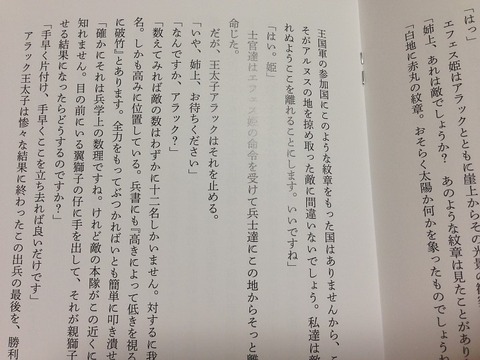 「はっ」
エフェス姫はアラックとともに崖上からその光景の
「姉上、あれは敵でしょうか？　あのような紋章は見たことがあり
「白地に赤丸の紋章。おそらく太陽か何かを象ったものでしょう
王国軍の参加国にこのような紋章をもった国はありませんから、こ
そがアルヌスの地を掠め取った敵に間違いないでしょう。私達は敵
れぬようここを離れることにします。いいですね」
「はい。姫」
士官達はエフェス姫の命令を受けて兵士達にこの地からそっと離
命じた。
だが、王太子アラックはそれを止める。
「いや、姉上、お待ちください」
「なんですか、アラック？」
「数えてみれば敵の数はわずかに十二名しかいません。対するに我
名。しかも高みに位置している。兵書にも『高きによって低きを視る
に破竹』とあります。全力をもってぶつかればいとも簡単に叩き潰せ
「確かにそれは兵学上の数理ですね。けれど敵の本隊がこの近くに
知れません。目の前にいる翼獅子の仔に手を出して、それが親獅子
せる結果になったらどうするのですか？」
「手早く片付け、手早くここを立ち去れば良いだけです」
アラック王太子は惨々な結果に終わったこの出兵の最後を、勝利